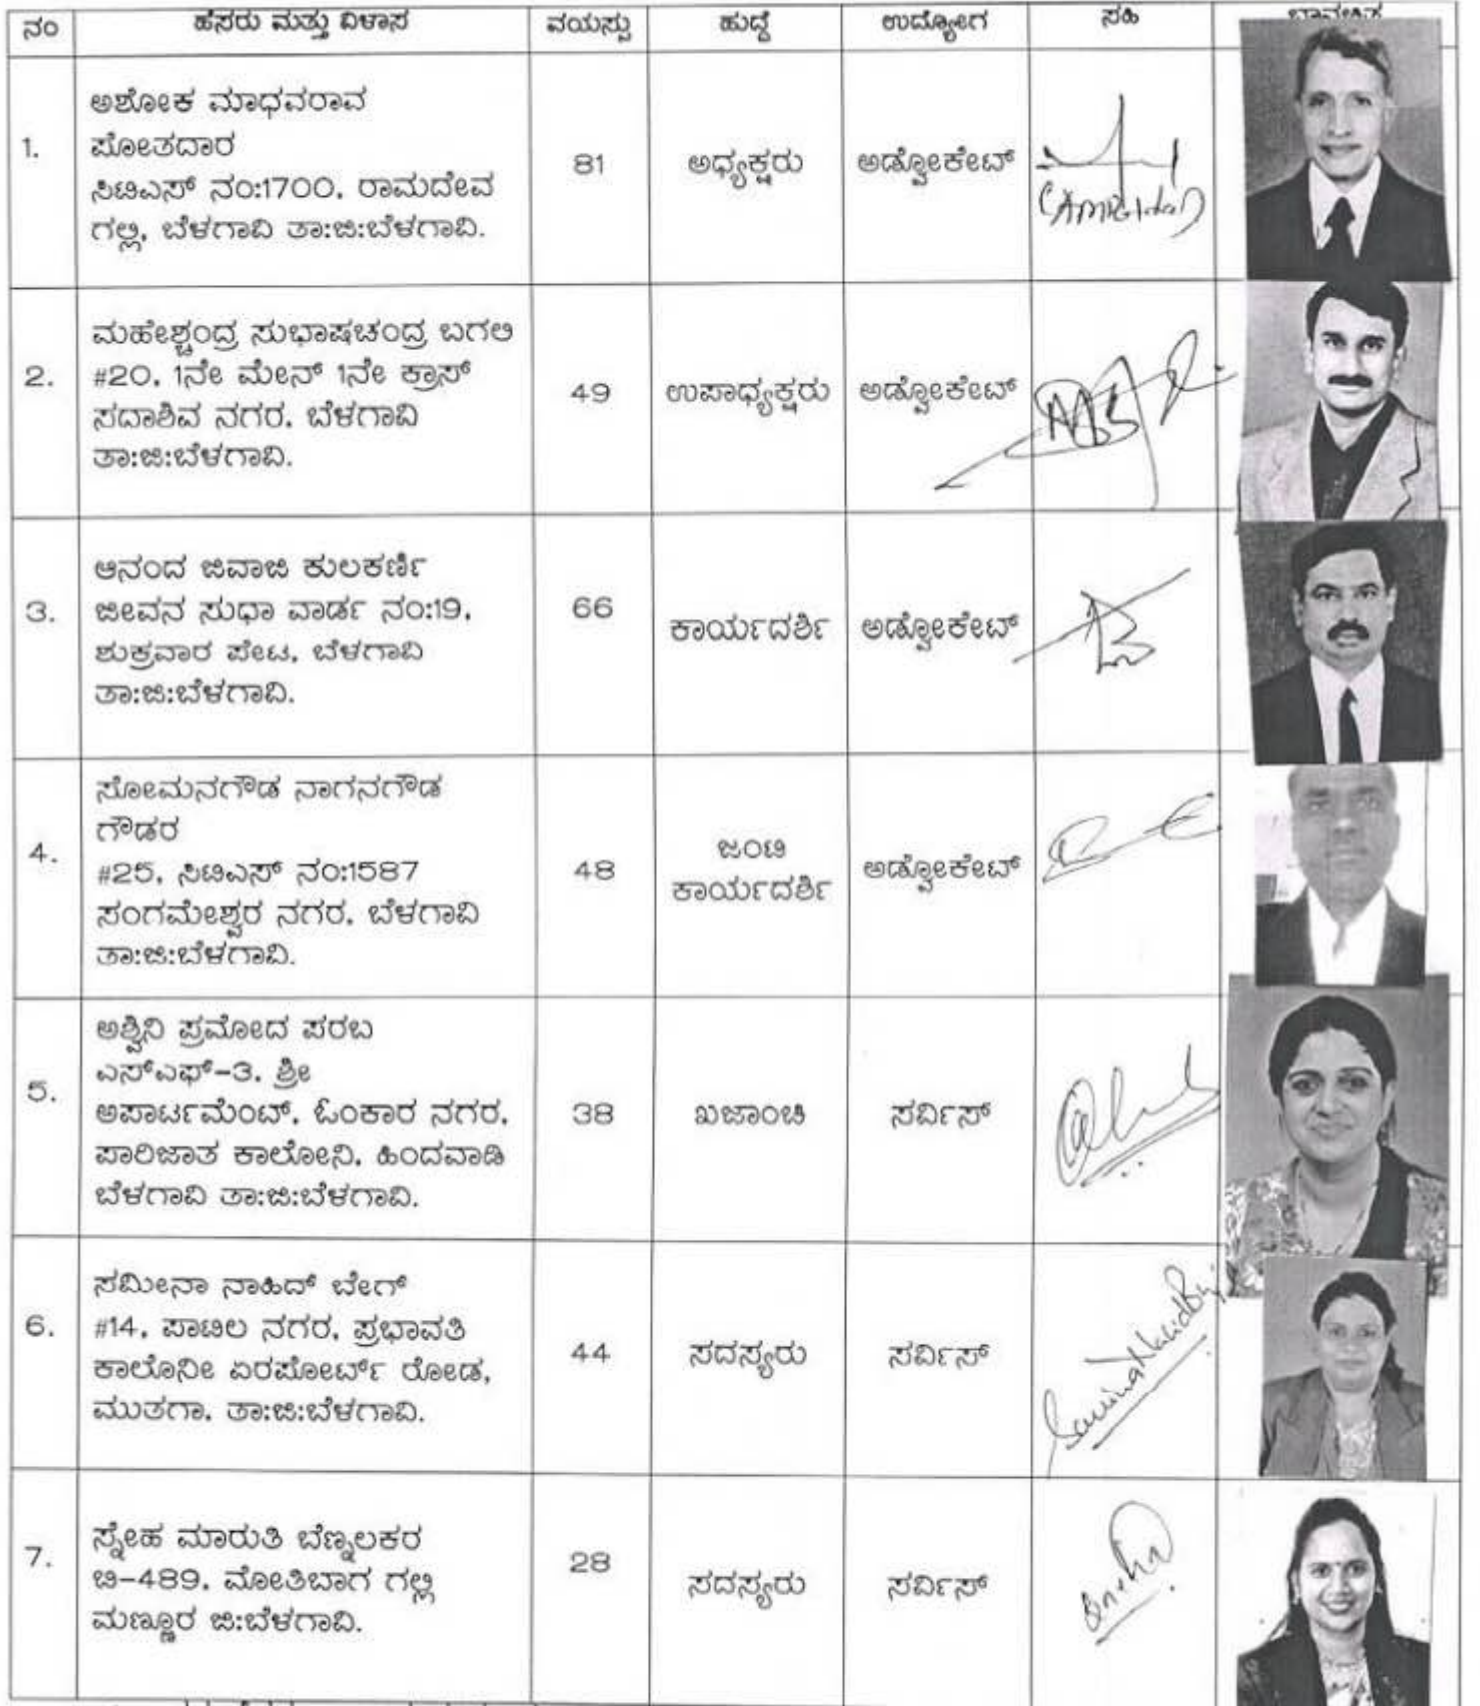 ನಂ ಹೆಸರು ಮತ್ತು ವಿಳಾಸ ವಯಸ್ಸು ಹುದ್ದೆ ಉದ್ಯೋಗ ಸಹಿ ಭಾವಚಿತ್ರ
1. ಅಶೋಕ ಮಾಧವರಾವ
ಪೋತದಾರ
ಸಿಟಿಎಸ್ ನಂ:1700, ರಾಮದೇವ
ಗಲ್ಲಿ, ಬೆಳಗಾವಿ ತಾ:ಜಿ:ಬೆಳಗಾವಿ.
81 ಅಧ್ಯಕ್ಷರು ಅಡ್ವೋಕೇಟ್
2. ಮಹೇಶ್ಚಂದ್ರ ಸುಭಾಷಚಂದ್ರ ಬಗಲಿ
#20, 1ನೇ ಮೇನ್ 1ನೇ ಕ್ರಾಸ್
ಸದಾಶಿವ ನಗರ, ಬೆಳಗಾವಿ
ತಾ:ಜಿ:ಬೆಳಗಾವಿ.
49 ಉಪಾಧ್ಯಕ್ಷರು ಅಡ್ವೋಕೇಟ್
3. ಆನಂದ ಜಿವಾಜಿ ಕುಲಕರ್ಣಿ
ಜೀವನ ಸುಧಾ ವಾರ್ಡ ನಂ:19,
ಶುಕ್ರವಾರ ಪೇಟ, ಬೆಳಗಾವಿ
ತಾ:ಜಿ:ಬೆಳಗಾವಿ.
66 ಕಾರ್ಯದರ್ಶಿ ಅಡ್ವೋಕೇಟ್
4. ಸೋಮನಗೌಡ ನಾಗನಗೌಡ
ಗೌಡರ
#25, ಸಿಟಿಎಸ್ ನಂ:1587
ಸಂಗಮೇಶ್ವರ ನಗರ, ಬೆಳಗಾವಿ
ತಾ:ಜಿ:ಬೆಳಗಾವಿ.
48 ಜಂಟಿ
ಕಾರ್ಯದರ್ಶಿ ಅಡ್ವೋಕೇಟ್
5. ಅಶ್ವಿನಿ ಪ್ರಮೋದ ಪರಬ
ಎಸ್ಎಫ್-3, ಶ್ರೀ
ಅಪಾರ್ಟಮೆಂಟ್, ಓಂಕಾರ ನಗರ,
ಪಾರಿಜಾತ ಕಾಲೋನಿ, ಹಿಂದವಾಡಿ
ಬೆಳಗಾವಿ ತಾ:ಜಿ:ಬೆಳಗಾವಿ.
38 ಖಜಾಂಚಿ ಸರ್ವಿಸ್
6. ಸಮೀನಾ ನಾಹಿದ್ ಬೇಗ್
#14, ಪಾಟೀಲ ನಗರ, ಪ್ರಭಾವತಿ
ಕಾಲೊನೀ ಏರಪೋರ್ಟ್ ರೋಡ,
ಮುತಗಾ, ತಾ:ಜಿ:ಬೆಳಗಾವಿ.
44 ಸದಸ್ಯರು ಸರ್ವಿಸ್
7. ಸ್ನೇಹ ಮಾರುತಿ ಬೆಣ್ನಲಕರ
ಬಿ-489, ಮೋತಿಬಾಗ ಗಲ್ಲಿ
ಮಣ್ಣೂರ ಜಿ:ಬೆಳಗಾವಿ.
28 ಸದಸ್ಯರು ಸರ್ವಿಸ್ Sneha